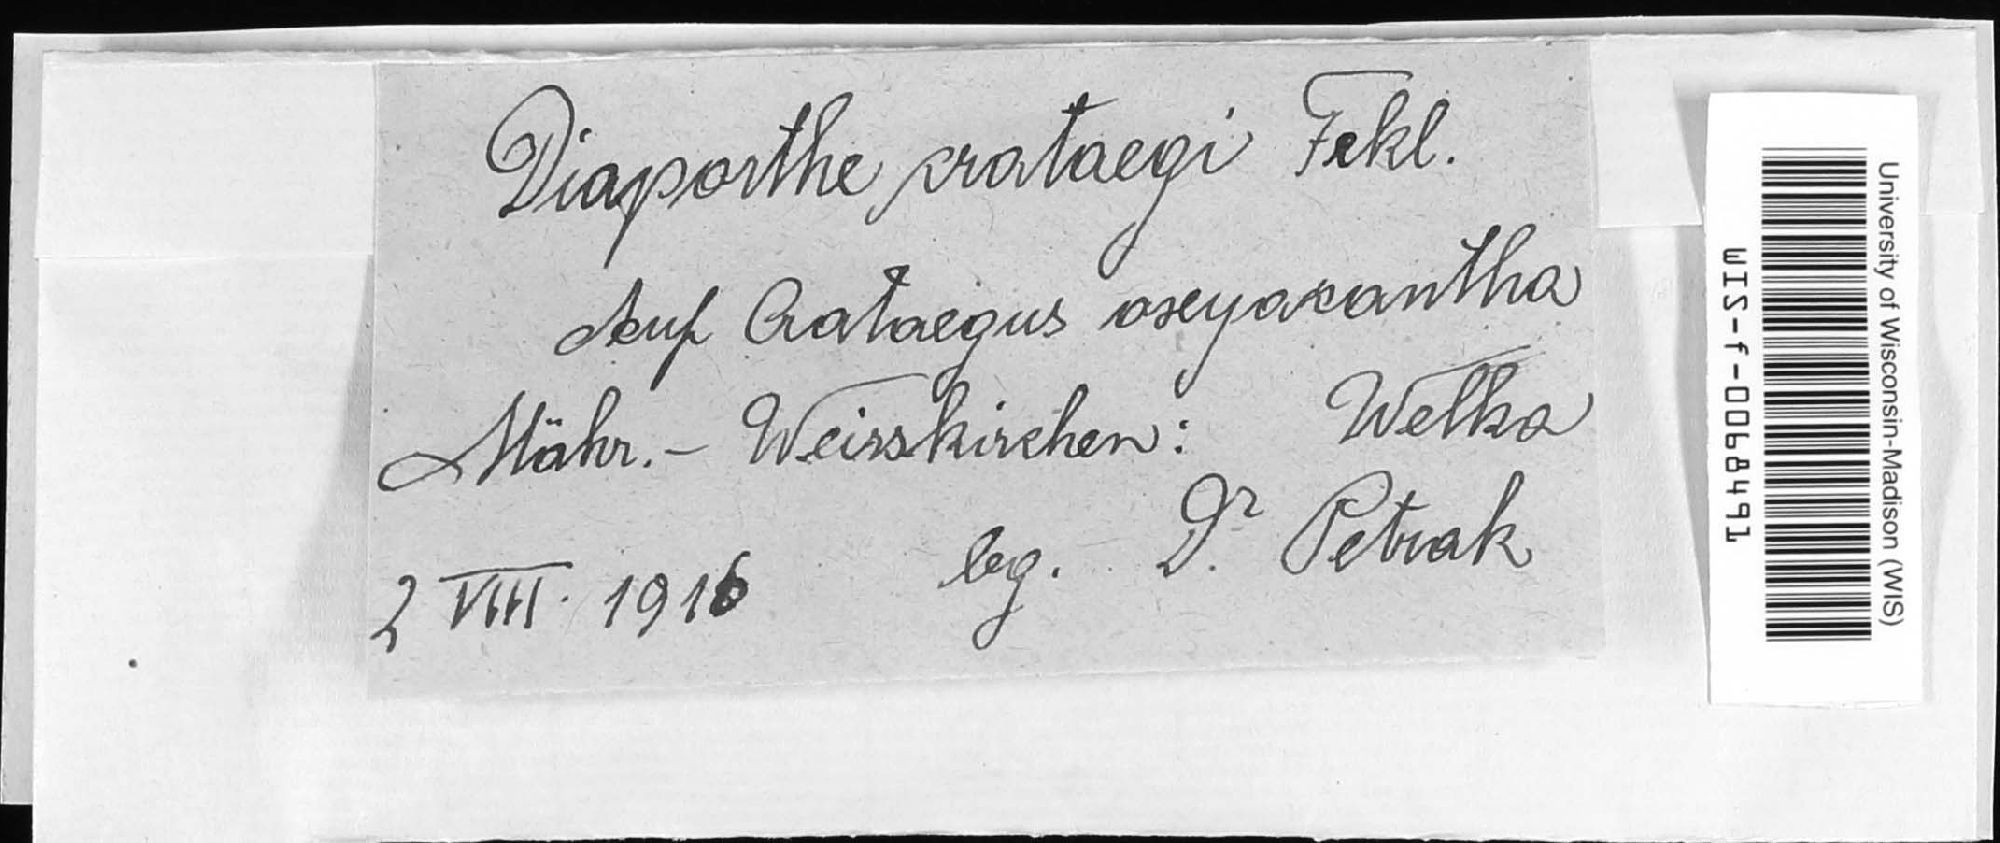 Diaporthe crataegi Fckl.
Auf Crataegus oxyacantha
Mähr.- Weisskirchen: Welka
2 VIII. 1916 leg. Dr Petrak
University of Wisconsin-Madison (WIS)
WIS-f-0068491